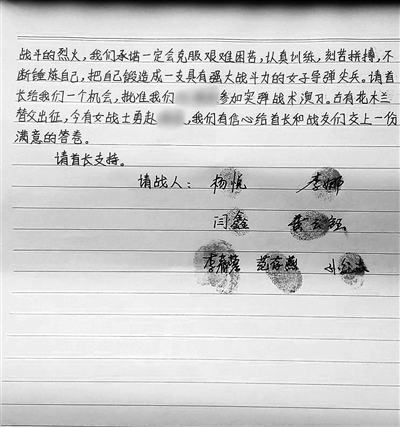 战斗的烈火，我们承诺一定会克服艰难困苦，认真训练，刻苦拼搏，不
断锤炼自己，把自己锻造成一支具有强大战斗力的女子导弹尖兵。请首
长给我们一个机会，批准我们参加实弹战术演习。古有花木兰
替父出征，今有女战士勇赴，我们有信心给首长和战友们交上一份
满意的答卷。
请首长支持。
请战人：杨 李娜
闫鑫
李 范存燕